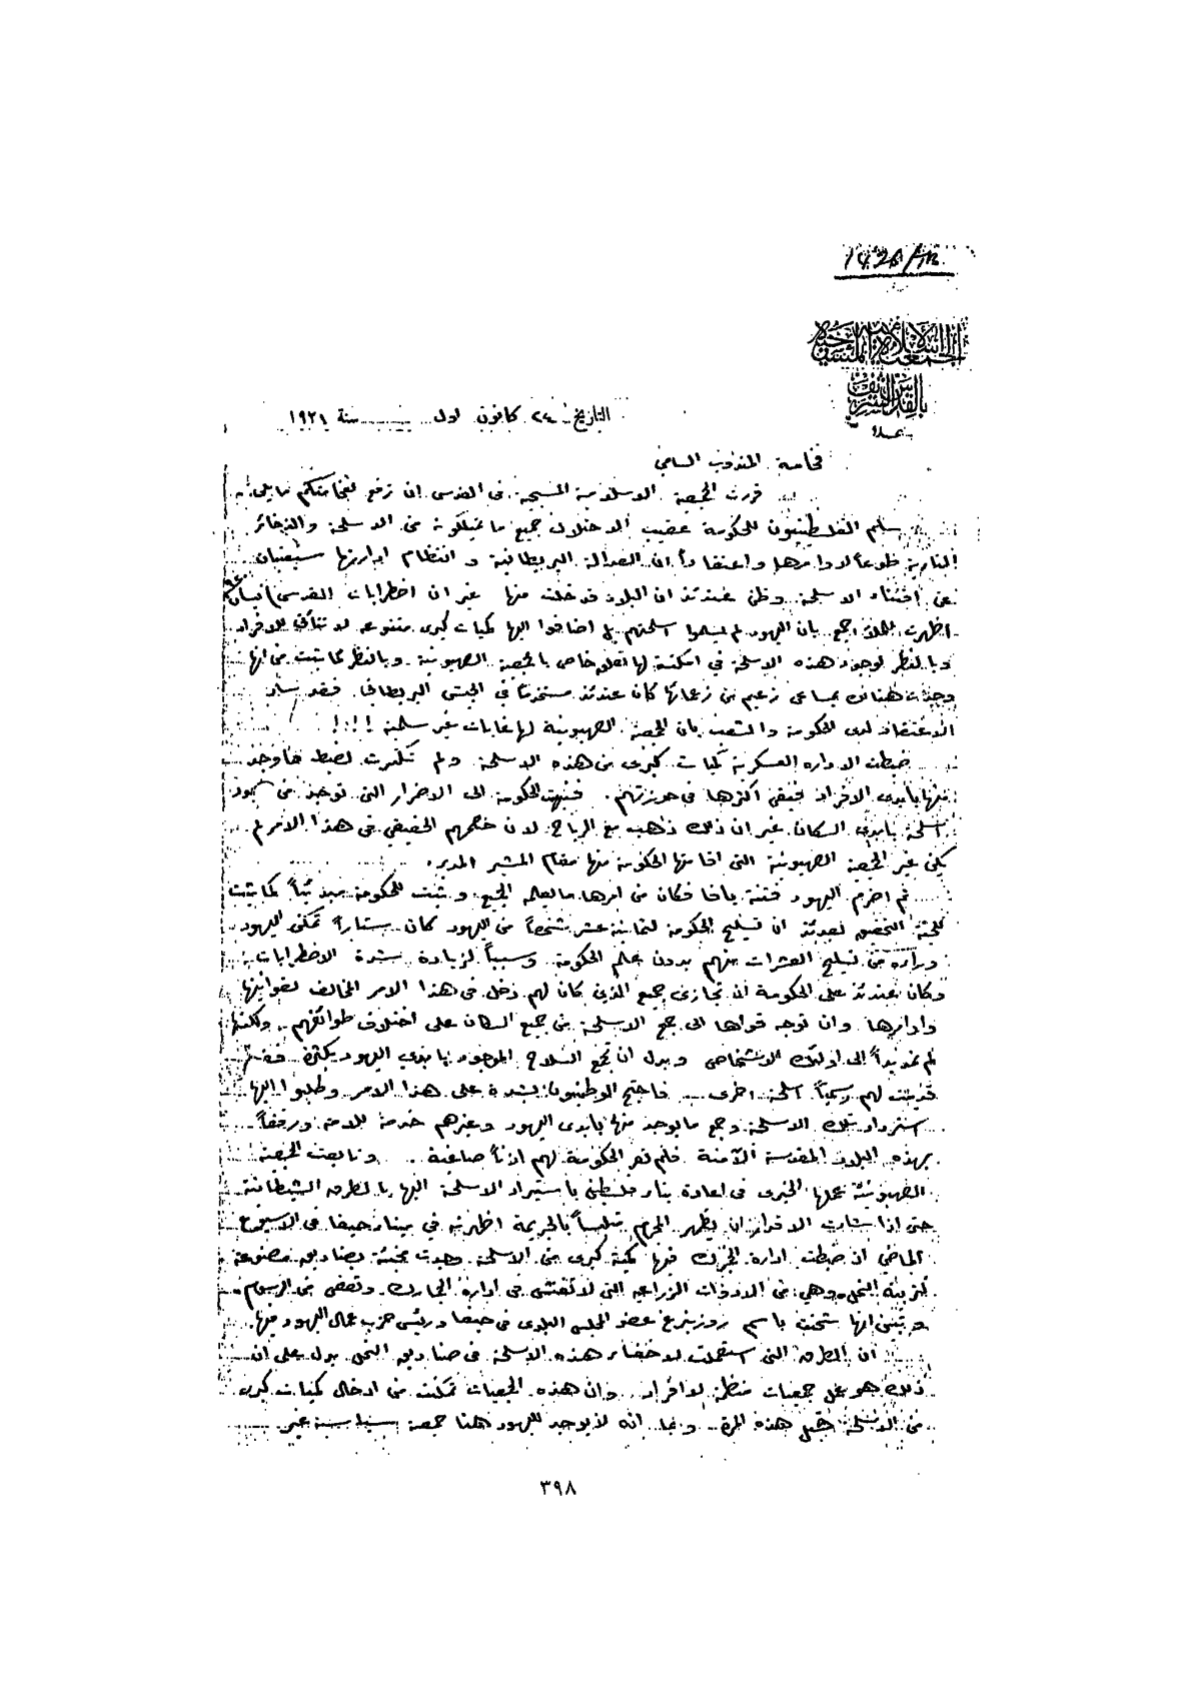 الجمعية الاسلامية المسيحية
بالقدس الشريف
عدد
التاريخ ٢٤ كانون اول سنة ١٩٢١
فخامة المندوب السامي
قررت الجمعية الاسلامية المسيحية في القدس ان ترفع لفخامتكم ما يلي :
سلم الفلسطينيون للحكومة عقيب الاحتلال جميع ما يملكونه من الاسلحة والذخائر
النارية طوعاً لاوامرها واعتقاداً ان العدالة البريطانية وانتظام ادارتها سيغنيان
عن اقتناء الاسلحة وظن عندئذ ان البلاد قد خلت منها غير ان اضطرابات القدس نيسان
اظهرت للملأ اجمع بان اليهود لم يسلموا اسلحتهم بل اضافوا اليها كميات كبرى متنوعه لا تتأتى للافراد
وبالنظر لوجود هذه الاسلحة في امكنة لها تعلق خاص بالجمعية الصهيونية وبالنظر لما ثبت من انها
وجدت هناك بمساعي زعيم من زعمائها كان عندئذ مستخدماً في الجيش البريطاني فقد ساد
الاعتقاد لدى الحكومة والشعب بان الجمعية الصهيونية لها غايات غير سلمية !!!
ضبطت الاداره العسكرية كميات كبرى من هذه الاسلحة ولم تكترث لضبط ما وجد
منها بأيدي الافراد فبقي اكثرها في حوزتهم . فنبهت الحكومة الى الاضرار التي توجد من وجود
اسلحة بايدي السكان غير ان ذلك ذهب مع الرياح لان خصمهم الحقيقي في هذا الامر لم
يكن غير الجمعية الصهيونية التي اقامتها الحكومة منها مقام المشير المدير .
ثم اضرم اليهود فتنة يافا فكان من امرها ما يعلمه الجميع وثبت للحكومة مبدئياً كما ثبت
للجنة التحقيق بعدئذ ان تسليح الحكومة لثمانية عشر شخصاً من اليهود كان ستاراً تمكن اليهود
وراءه من تسليح العشرات منهم بدون علم الحكومة وسبباً لزيادة شدة الاضطرابات
وكان عندئذ على الحكومة ان تجازي جميع الذين كان لهم دخل في هذا الامر المخالف لقوانينها
وادارتها وان توجه قواها الى جمع الاسلحة من جميع السكان على اختلاف طوائفهم ولكنها
لم تمد يداً الى اولئك الاشخاص وبدل ان تجمع السلاح الموجود بايدي اليهود بكثرة فقد
قدمت لهم رسمياً اسلحة اخرى فاحتج الوطنيون بشدة على هذا الامر وطلبوا اليها
استرداد تلك الاسلحة وجمع ما يوجد منها بايدي اليهود وغيرهم خدمة للامن ورفقاً
بهذه البلاد المقدسة الآمنة فلم تعر الحكومة لهم اذناً صاغية . وتابعت الجمعية
الصهيونية عملها الخيري في اعادة بناء فلسطين باستيراد الاسلحة اليها بالطرق الشيطانية
حتى اذا شاءت الاقدار ان يظهر المجرم متلبساً بالجريمة اظهرته في ميناء حيفا في الاسبوع
الماضي اذ ضبطت ادارة الجمرك فيها كمية كبرى من الاسلحة وجدت مخبئة بصناديق مصنوعة
لتربية النحل وهي من الادوات الزراعية التي لا تفتش في ادارة الجمارك وتعفى من الرسوم .
وتبين انها شحنت باسم روزنبرغ عضو المجلس البلدي في حيفا ورئيس حزب عمال اليهود فيها .
ان الطرق التي استعملت لاخفاء هذه الاسلحة في صناديق النحل يدل على ان
ذلك هو عمل جمعيات منظمة لا افراد وان هذه الجمعيات تمكنت من ادخال كميات كبرى
من الاسلحة قبل هذه المرة . وبما انه لا يوجد لليهود هنا جمعية سياسية غير
٣٩٨